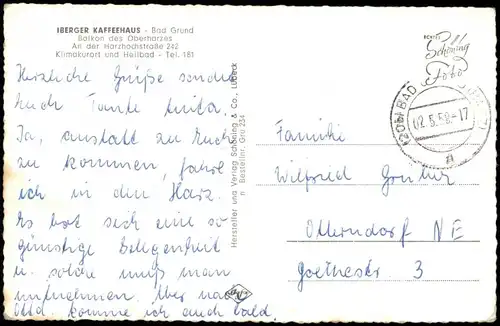 IBERGER KAFFEEHAUS - Bad Grund
Balkon des Oberharzes
An der Harzhochstraße 242
Klimakurort und Heilbad - Tel. 181
Herzliche Grüße sendet
Euch Tante Anita.
Ja, anstatt zu Euch
zu kommen, fahre
ich in den Harz.
Es bot sich eine so
günstige Gelegenheit
u. solche muß man
mitnehmen. Aber nach
Ottd. komme ich auch bald.
Hersteller und Verlag Schöning & Co., Lübeck
Bestellnr. Gru 234
ECHTES
Schöning
Foto
(20b) BAD
02.5.59.-17
a
Familie
Wilfried
Otterndorf NE
Goethestr. 3